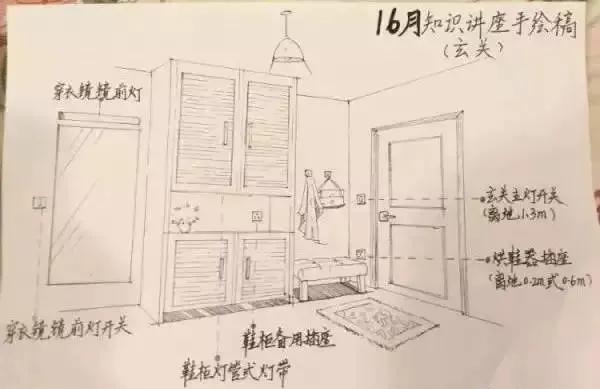 16月知识讲座手绘稿
(玄关)
穿衣镜镜前灯
玄关主灯开关
(离地1.3m)
烘鞋器插座
(离地0.2m或0.6m)
穿衣镜镜前灯开关
鞋柜备用插座
鞋柜灯管或灯带